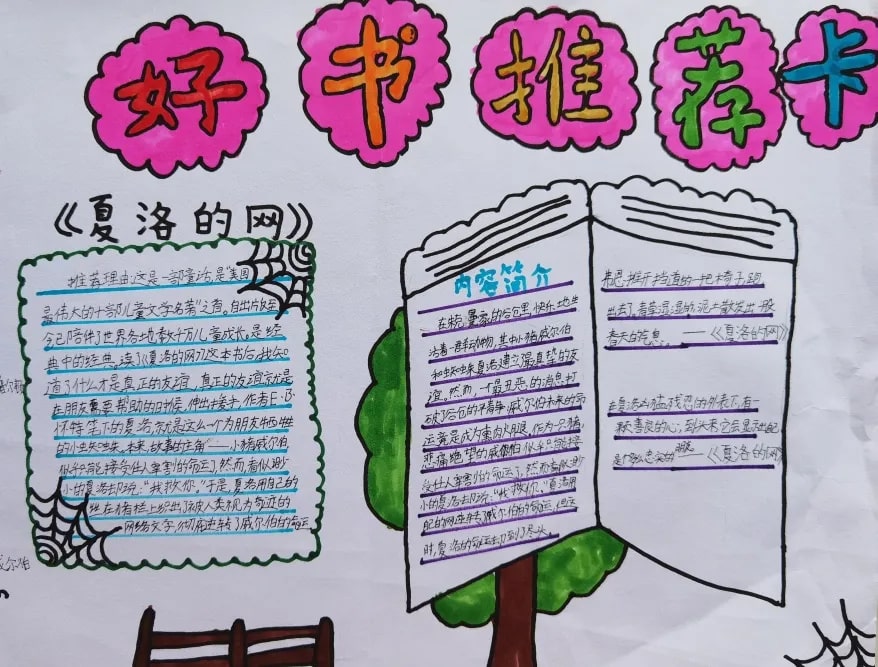 好书推荐卡
《夏洛的网》
推荐理由:这是一部童话,是"美国
最伟大的十部儿童文学名著"之首。自出版至
今已陪伴了世界各地数千万儿童成长。是经
典中的经典。读了《夏洛的网》这本书后,我知
道了什么才是真正的友谊,真正的友谊就是
在朋友需要帮助的时候,伸出援手,作者E·B·
怀特笔下的夏洛,就是这么一个为朋友牺牲
的小蜘蛛。本来,故事的主角——小猪威尔伯
似乎只能接受任人宰割的命运,然而看似渺
小的夏洛却说:"我救你。"于是,夏洛用自己的
丝在猪栏上织出了被人类视为奇迹的
网络文字,彻底逆转了威尔伯的命运
内容简介
在朱克曼家的谷仓里,快乐地生
活着一群动物,其中小猪威尔伯
和蜘蛛夏洛建立最真挚的友
谊。然而,一个最丑恶的消息打
破了谷仓的平静:威尔伯未来的命
运竟是成为熏肉火腿。作为一只猪,
悲痛绝望的威尔伯似乎只能接
受任人宰割的命运了,然而看似渺
小的夏洛却说:"我救你",夏洛用
自己的网逆转了威尔伯的命运,但这
时,夏洛的命运却到了尽头。
弗恩推开挡道的一把椅子,跑
出去了,青草湿湿的,泥土散发出一股
春天的气息。——《夏洛的网》
在夏洛凶猛残忍的外表下,有一
颗善良的心,到头来,它会显示出自己
是个多么忠实的朋友——《夏洛的网》
威尔伯